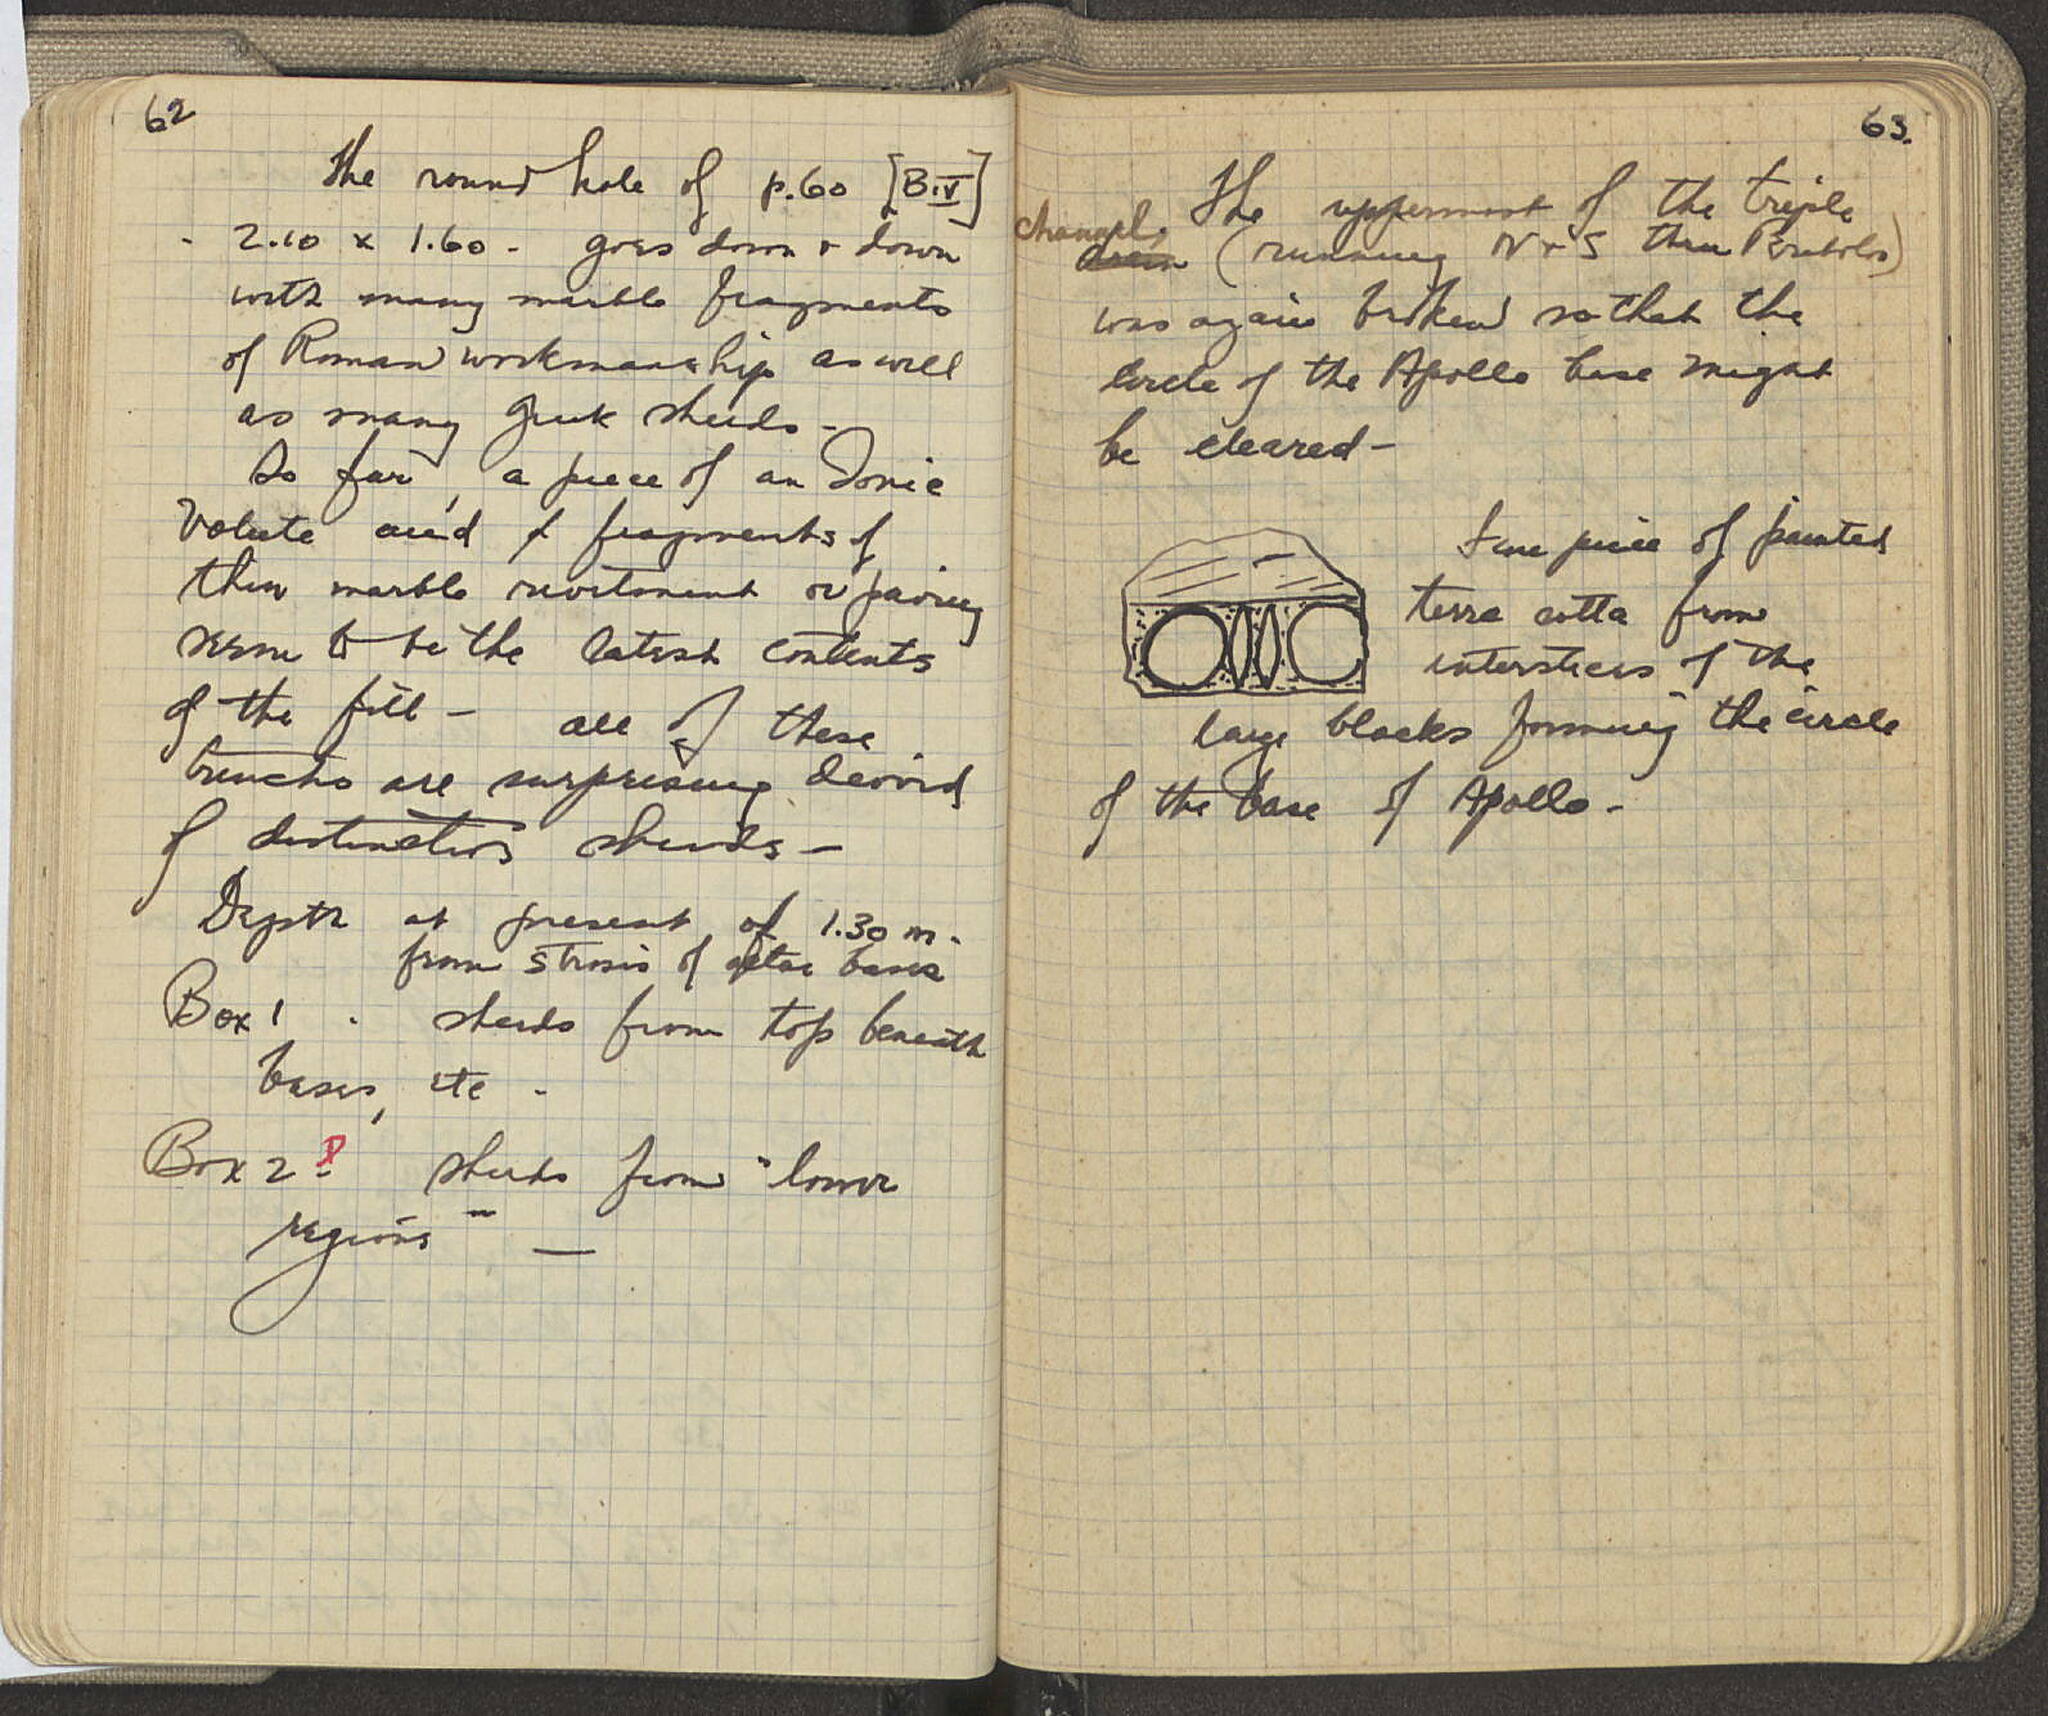 62
The round hole of p.60 [B.IV]
- 2.10 x 1.60 - goes down + down
with many marble fragments
of Roman workmanship as well
as many Greek sherds -
So far, a piece of an Ionic
volute and fragments of
thin marble revetment or paving
seem to be the latest contents
of the fill - all of these
trenches are surprising devoid
of distinctive sherds -
Depth at present of 1.30 m.
from strosis of altar bases
Box 1 . sherds from top beneath
bases, etc -
Box 2 sherds from "lower
regions" —
63.
The uppermost of the triple
channel,
drain (running N + S thru Peribolos)
was again broken so that the
circle of the Apollo base might
be cleared -
Fine piece of painted
terra cotta from
interstices of the
large blocks forming the circle
of the base of Apollo -